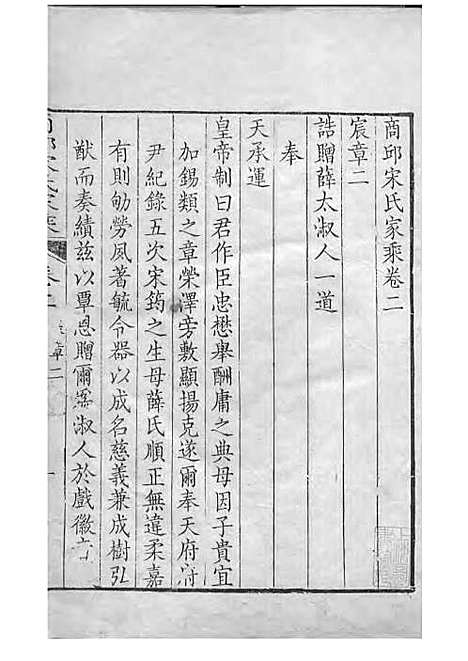 商邱宋氏家乘卷二
宸章二
誥贈薛太淑人一道
奉
天承運
皇帝制曰君作臣忠懋舉酬庸之典母因子貴宜
加錫類之章榮澤旁敷顯揚克遂爾奉天府府
尹紀錄五次宋筠之生母薛氏順正無違柔嘉
有則劬勞夙著毓令器以成名慈義兼成樹弘
猷而奏績茲以覃恩贈爾為淑人於戲徽音
商邱宋氏家乘 卷二 宸章二 一